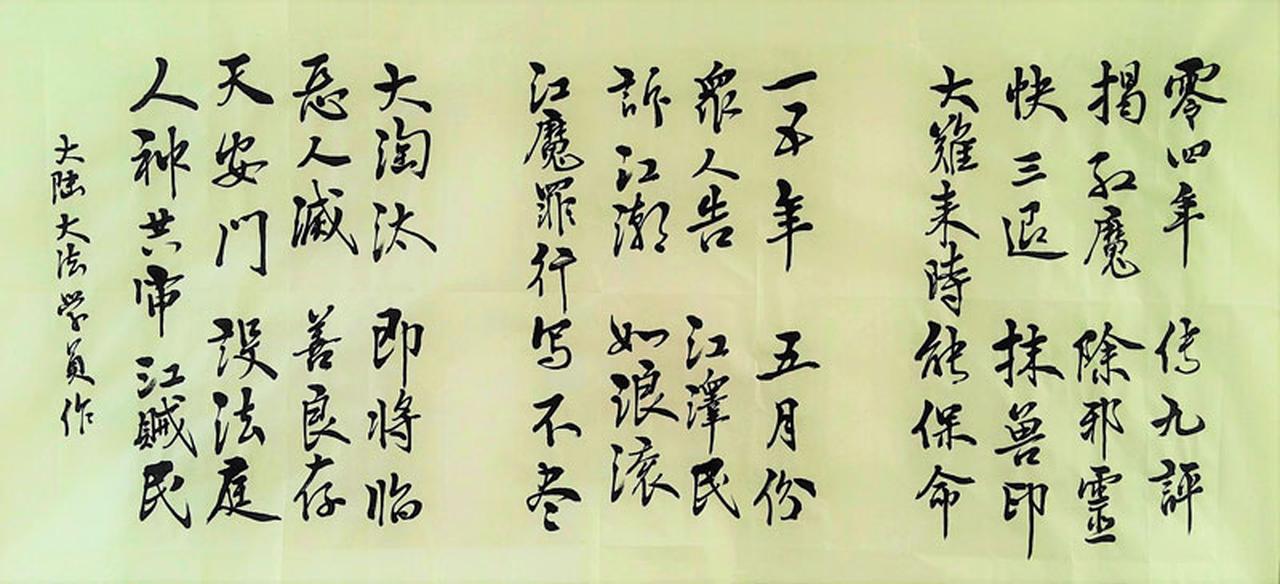 零四年 传九評
揭红魔 除邪靈
快三退 抹兽印
大難来時能保命
一五年 五月份
眾人告 江澤民
訴江潮 如浪滚
江魔罪行写不尽
大淘汰 即将临
恶人滅 善良存
天安門 設法庭
人神共审江贼民
大陆大法学员作